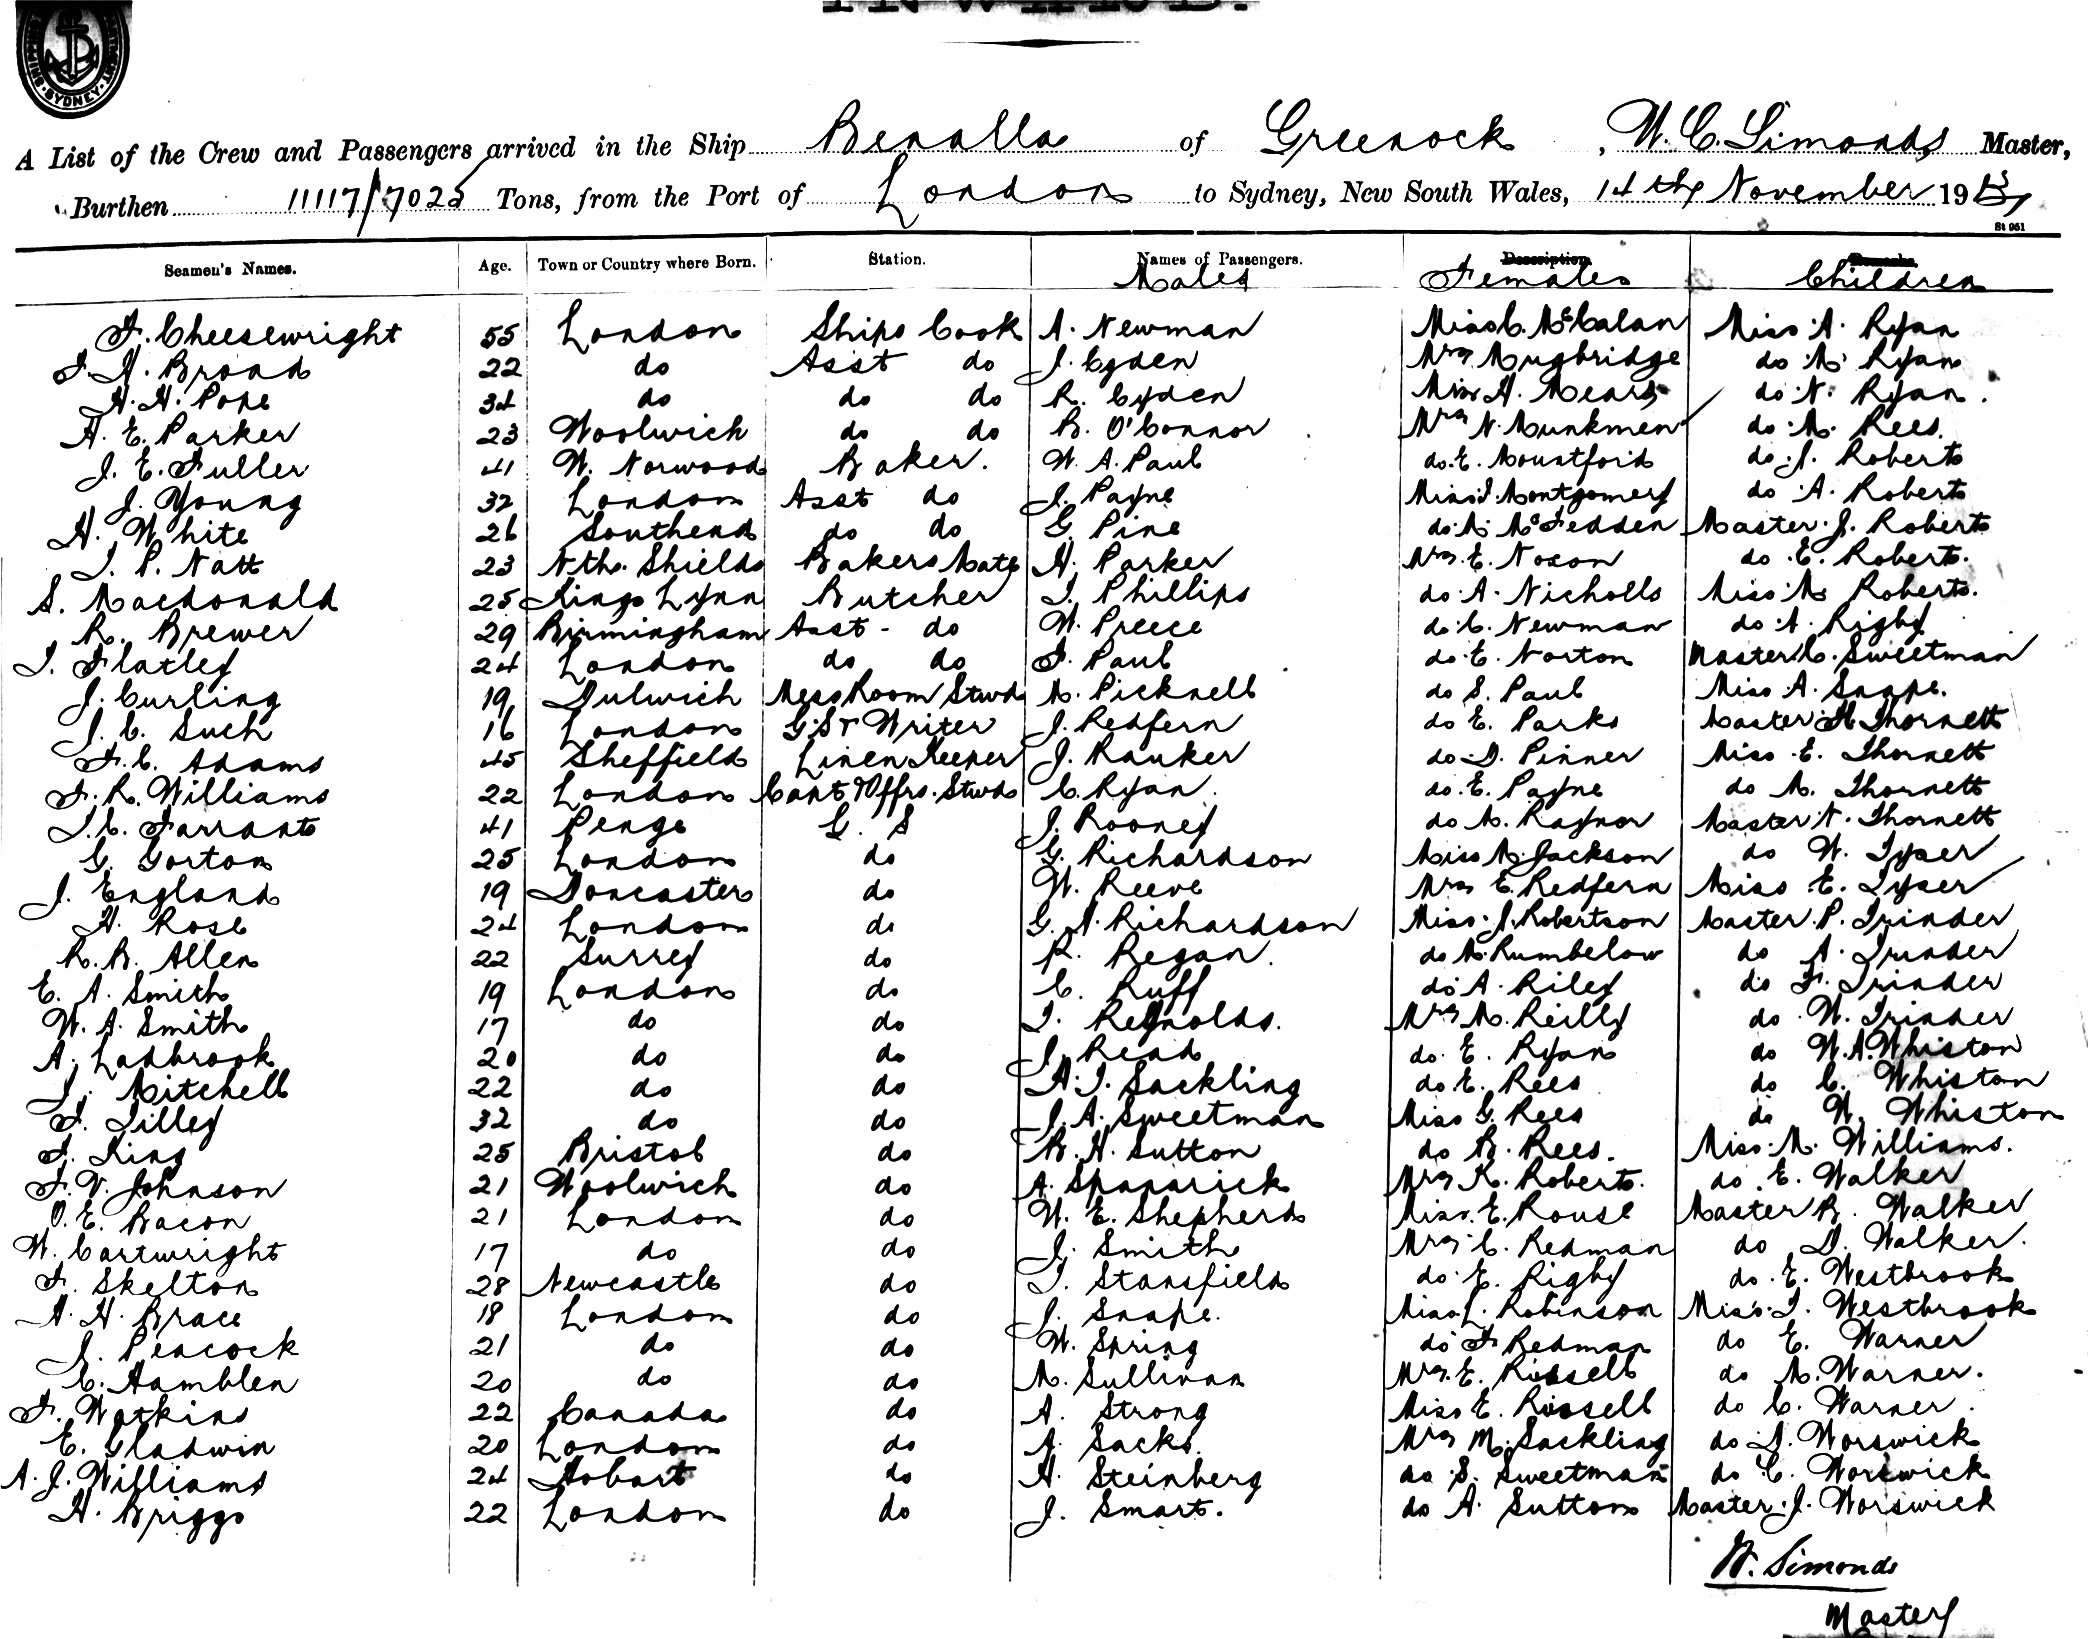 SYDNEY
INWARD.
A List of the Crew and Passengers arrived in the Ship Benalla of Greenock, W. C. Simonds Master,
Burthen 11117/7025 Tons, from the Port of London to Sydney, New South Wales, 14th November 1913
St 951
Seamen's Names. Age. Town or Country where Born. Station. Names of Passengers. Description Remarks
Males Females Children
F. Cheesewright 55 London Ships Cook A. Newman Miss C. McCalan Miss A. Ryan
F. H. Broad 22 do Asst do J. Ogden Mrs Mugbridge do M. Ryan
H. H. Pope 34 do do do R. Ogden Miss H. Mears do N. Ryan.
A. E. Parker 23 Woolwich do do B. O'Connor Mrs N. Munkmen do M. Rees.
J. E. Fuller 41 W. Norwood Baker. W. A. Paul do. E. Mountford do J. Roberts
J. Young 32 London Asst do J. Payne Miss J. Montgomery do A. Roberts
H. White 26 Southend do do G. Pine do M. McFedden Master J. Roberts
T. P. Natt 23 Nth. Shields Bakers Mate H. Parker Mrs. E. Noxon do E. Roberts.
S. Macdonald 25 Kings Lynn Butcher T. Phillips do A. Nicholls Miss M. Roberts.
R. Brewer 29 Birmingham Asst - do W. Preece do C. Newman do A. Rigby
T. Flatley 24 London do do F. Paul do E. Norton Master C. Sweetman
J. Curling 19 Dulwich Mess Room Stwd M. Picknell do S. Paul Miss A. Snape.
J. C. Such 16 London G. S & Writer J. Redfern do E. Parks Master H. Thornett
F. C. Adams 45 Sheffield Linen Keeper J. Rauker do D. Pinner Miss E. Thornett
F. R. Williams 22 London Capt & Offrs. Stwd C. Ryan. do. E. Payne do M. Thornett
T. C. Farrants 41 Penge G. S J. Rooney do M. Raynor Master N. Thornett
G. Gorton 25 London do G. Richardson Miss M. Jackson do W. Tyser
J. England 19 Doncaster do W. Reeve Mrs E. Redfern Miss E. Tyser
H. Rose 24 London do G. A. Richardson Miss J. Robertson Master P. Trinder
R. B. Allen 22 Surrey do P. Regan. do M. Rumbelow do A. Trinder
E. A. Smith 19 London do C. Ruff do A. Riley do F. Trinder
W. A. Smith 17 do do T. Reynolds. Mrs M. Reilly do W. Trinder
A. Ladbrook 20 do do J. Read do. E. Ryan do W. A. Whiston
J. Mitchell 22 do do A. T. Sackling do E. Rees do C. Whiston
F. Tilley 32 do do J. A. Sweetman Miss G. Rees do W. Whiston
F. King 25 Bristol do B. H. Sutton do B. Rees. Miss M. Williams.
F. V. Johnson 21 Woolwich do A. Spararick Mrs K. Roberts. do E. Walker
O. E. Bacon 21 London do W. E. Shepherd Miss. E. Rouse Master B. Walker
W. Cartwright 17 do do J. Smith Mrs C. Redman do D. Walker.
F. Skelton 28 Newcastle do T. Stansfield do E. Rigby do. E. Westbrook
A. H. Brace 18 London do J. Snape. Miss L. Robinson Miss T. Westbrook
J. Peacock 21 do do W. Spring do F. Redman do E. Warner
C. Hamblen 20 do do M. Sullivan Mrs. E. Russell do M. Warner.
F. Watkins 22 Canada do A. Strong Miss E. Russell do C. Warner.
E. Gladwin 20 London do A. Sacks. Mrs M. Sackling do D. Worswick
A. J. Williams 24 Hobart do H. Steinberg do S. Sweetman do C. Worswick
H. Briggs 22 London do J. Smart. do A. Sutton Master J. Worswick
W. Simonds
Master